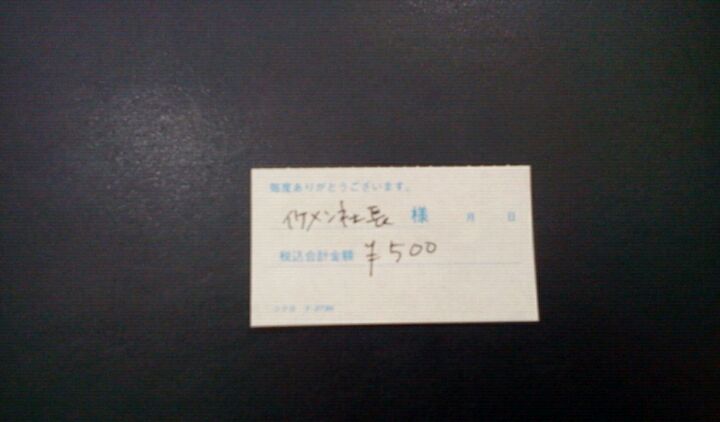 毎度ありがとうございます。
イケメン社長 様 月 日
税込合計金額 ¥500